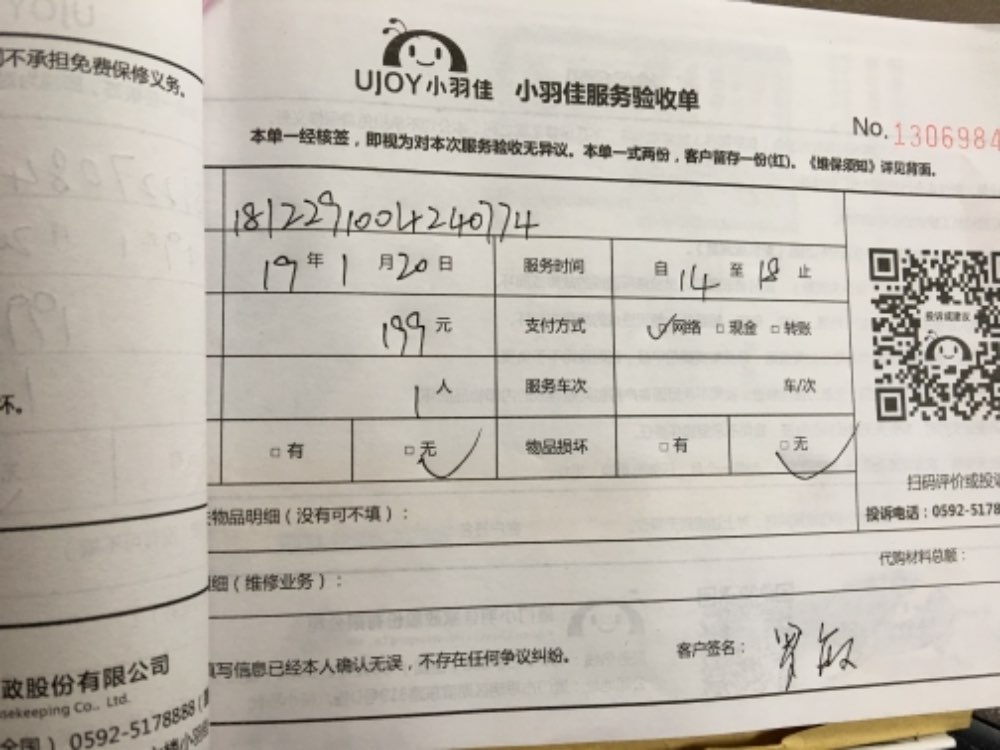 不承担免费保修义务。
坏。
政股份有限公司
sekeeping Co., Ltd.
全国）0592-5178888
UJOY小羽佳 小羽佳服务验收单
No. 1306984
本单一经核签，即视为对本次服务验收无异议。本单一式两份，客户留存一份(红)。《维保须知》详见背面。
181229100424077４
19 年 1 月 20 日 服务时间 自 14 至 18 止
199 元 支付方式 □网络 □现金 □转账
1 人 服务车次 车/次
□有 □无 物品损坏 □有 □无
投诉或建议
扫码评价或投诉
投诉电话：0592-5178
物品明细（没有可不填）：
代购材料总额：
细（维修业务）：
填写信息已经本人确认无误，不存在任何争议纠纷。
客户签名：罗敏